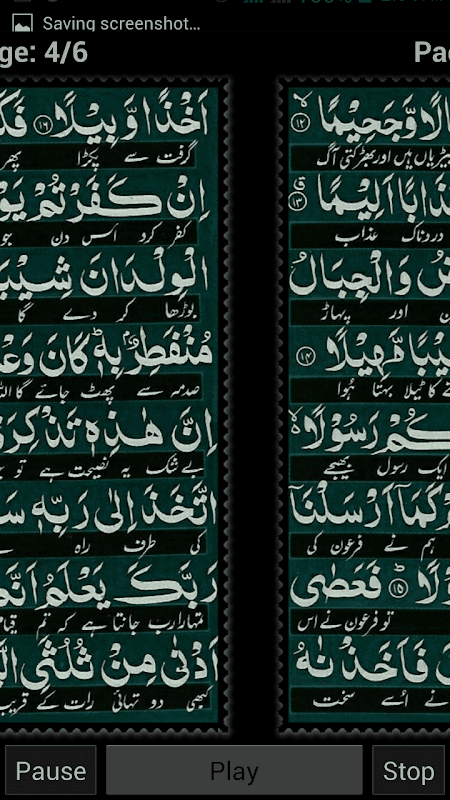 Saving screenshot...
ge: 4/6
Pa
الًا وَّجَحِيْمًا ۱۲
بیڑیاں ہیں اور بھڑکتی آگ
ذَابًا اَلِيْمًا ۱۳
دردناک عذاب
ضُ وَالْجِبَالُ
اور پہاڑ
يْبًا مَّهِيْلًا ۱۴
کا ٹیلا بہتا ہوا
كُمْ رَسُوْلًا
ایک رسول بھیجے
كَمَاۤ اَرْسَلْنَاۤ
ہم نے فرعون کی
لًا ۱۵ فَعَصٰى
تو فرعون نے اس
فَاَخَذْنٰهُ
نے اسے سخت
اَخْذًا وَّبِيْلًا ۱۶ فَكَ
گرفت سے پکڑا پھر
اِنْ كَفَرْتُمْ يَوْ
کفر کرو اس دن جو
الْوِلْدَانَ شِيْبَ
بوڑھا کر دے گا
مُنْفَطِرٌۢ بِهٖ كَانَ وَعْ
صدمہ سے پھٹ جائے گا
اِنَّ هٰذِهٖ تَذْكِرَ
بے شک یہ نصیحت ہے تو
اتَّخَذَ اِلٰى رَبِّهٖ سَ
کی طرف راہ
رَبَّكَ يَعْلَمُ اَنَّ
تمہارا رب جانتا ہے کہ تم
اَدْنٰى مِنْ ثُلُثَىِ الَّ
کبھی دو تہائی رات کے قریب
Pause
Play
Stop